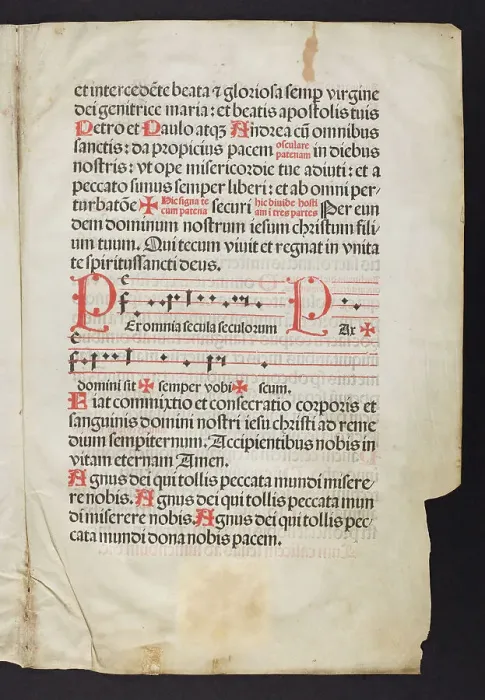 et intercedēte beata ⁊ gloriosa semp virgine
dei genitrice maria: et beatis apostolis tuis
Petro et Paulo atqꝫ Andrea cū omnibus
sanctis: da propicius pacem osculare patenam in diebus
nostris: vt ope misericordie tue adiuti: et a
peccato simus semper liberi: et ab omni per/
turbatōe ✠ Hic signa te cum patena securi hic diuide hosti am i tres partes Per eun
dem dominum nostrum iesum christum fili/
um tuum. Qui tecum viuit et regnat in vnita
te spiritussancti deus.
PEr omnia secula seculorum PAx ✠
domini sit ✠ semper vobi✠ scum.
Fiat commixtio et consecratio corporis et
sanguinis domini nostri iesu christi ad reme
dium sempiternum. Accipientibus nobis in
vitam eternam Amen.
Agnus dei qui tollis peccata mundi misere/
re nobis. Agnus dei qui tollis peccata mun
di miserere nobis. Agnus dei qui tollis pec/
cata mundi dona nobis pacem.